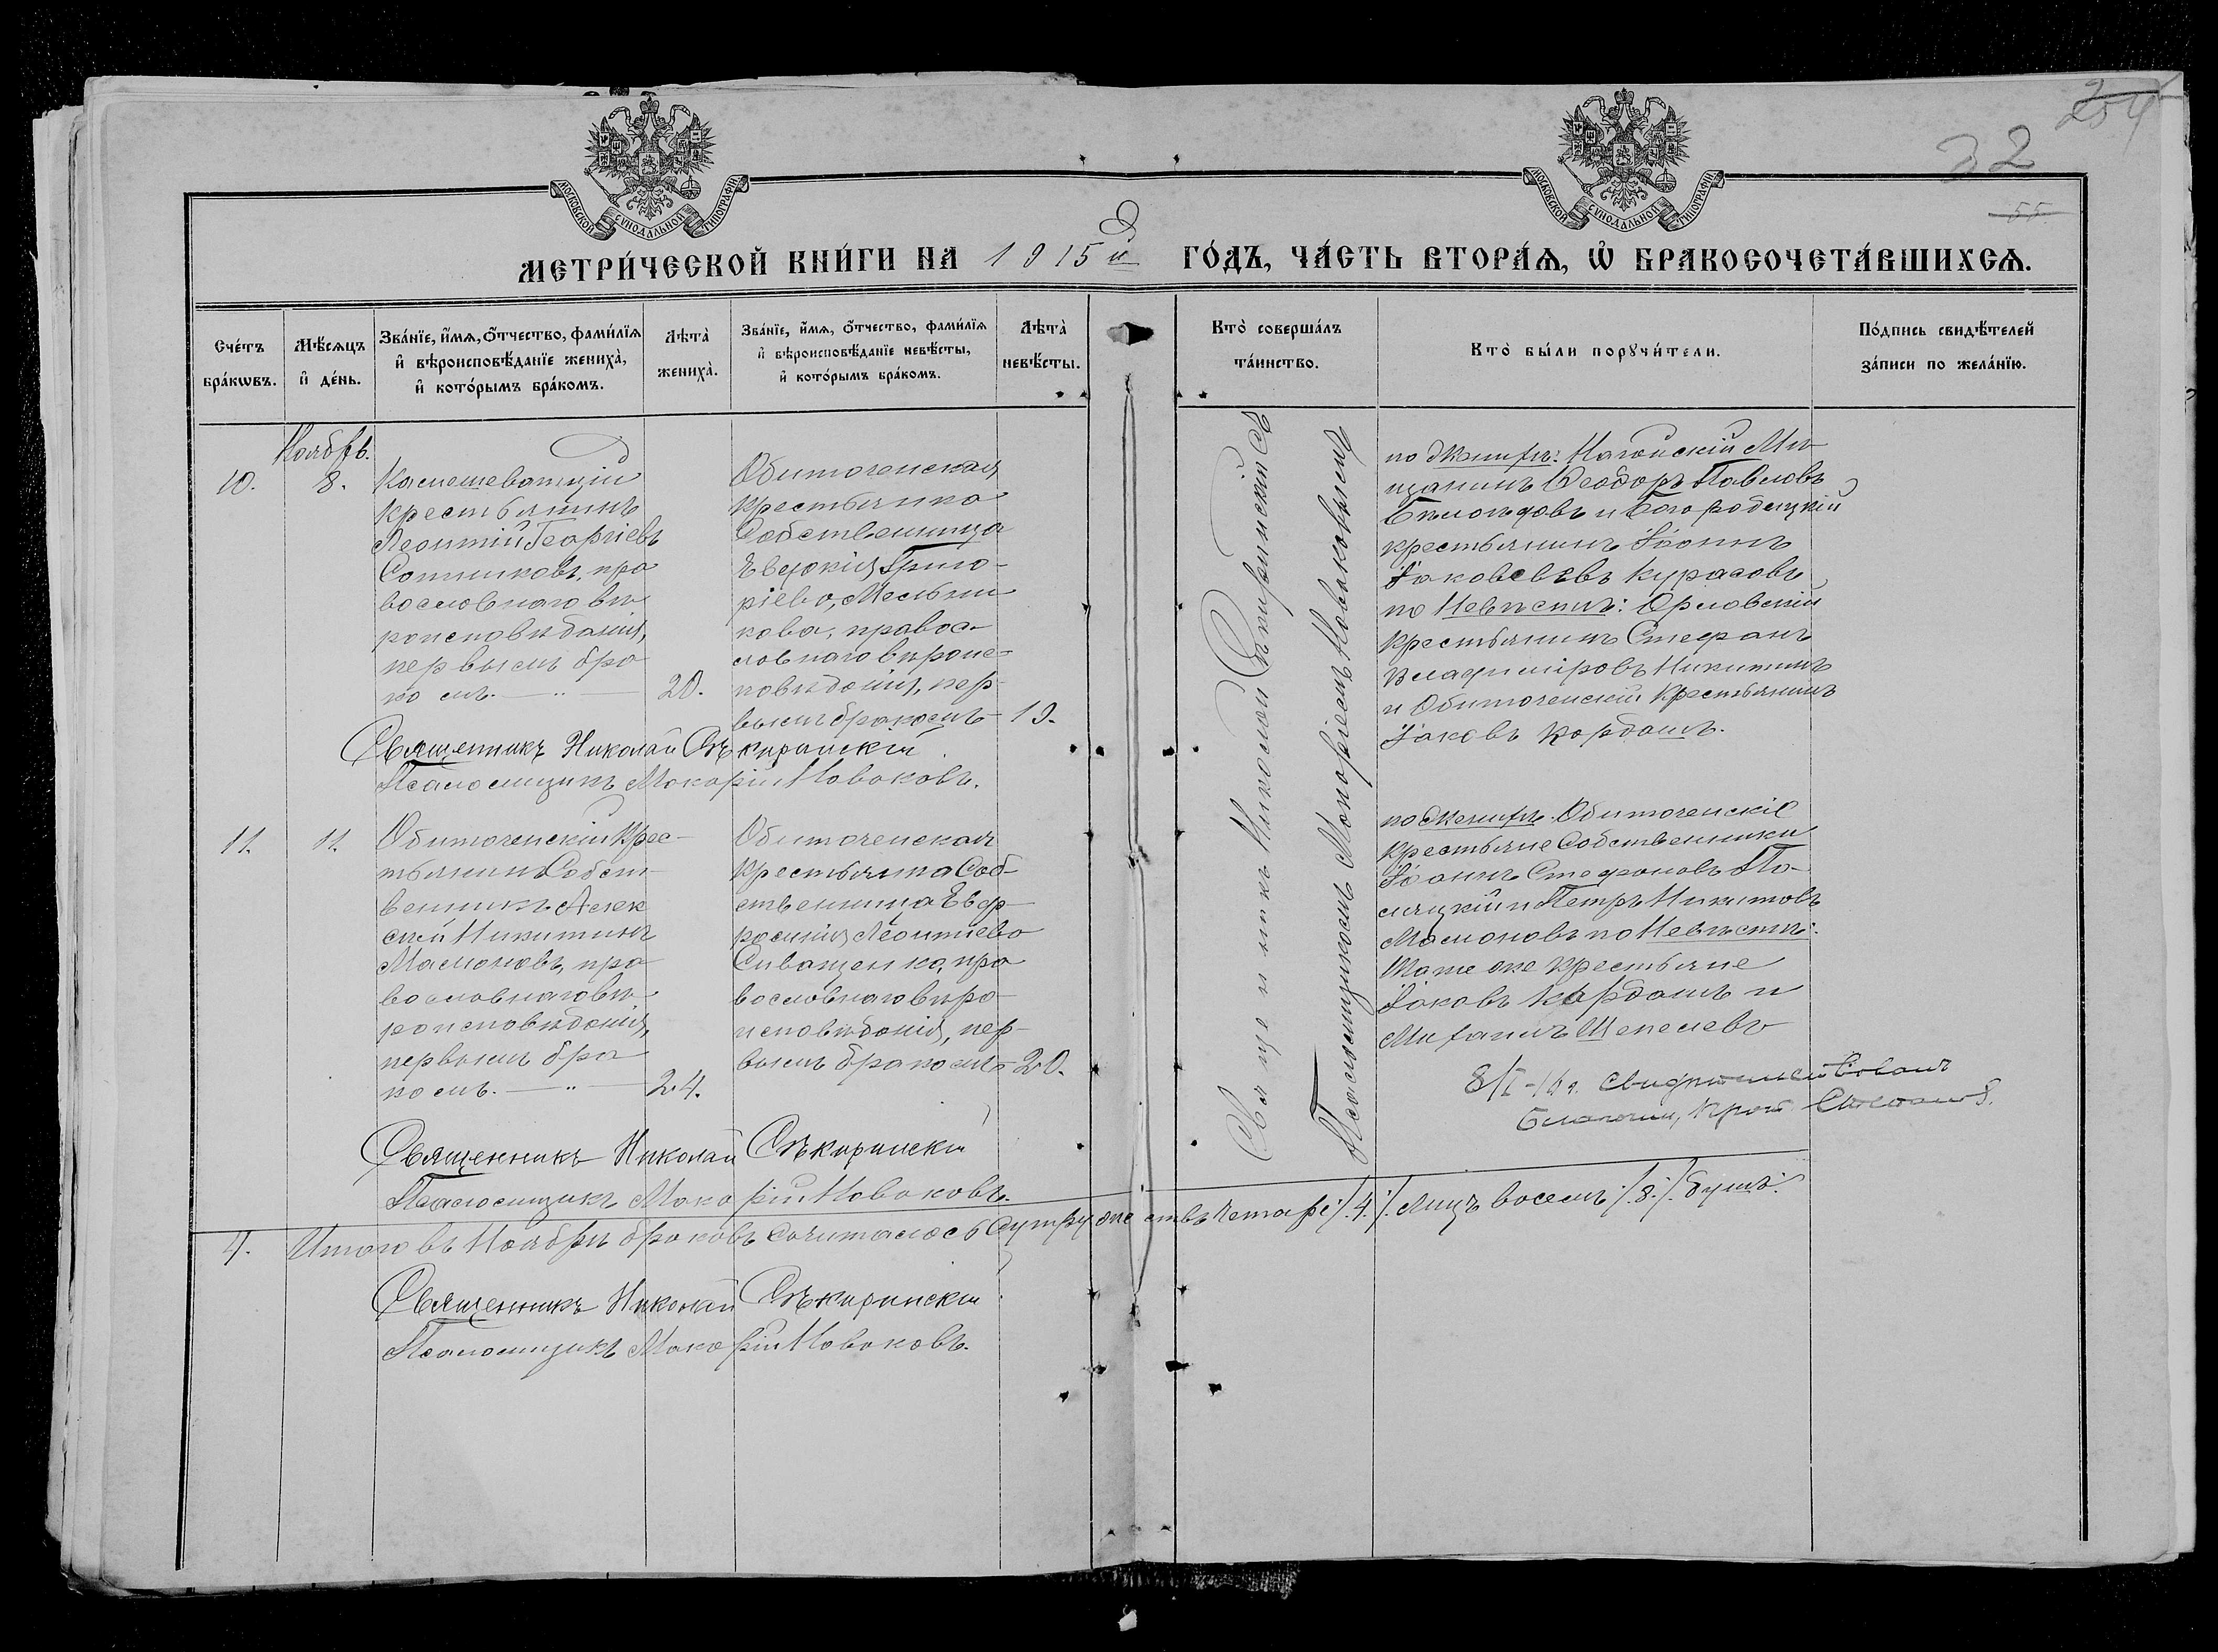 254
32
55
МОСКОВСКОЙ СѴНОДАЛЬНОЙ ТИПОГРАФИИ
МОСКОВСКОЙ СѴНОДАЛЬНОЙ ТИПОГРАФИИ
МЕТРИ́ЧЕСКОЙ КНИ́ГИ НА 1915й ГО́ДЪ, ЧА́СТЬ ВТОРА́Ѧ, Ѡ҆ БРАКОСОЧЕТА́ВШИХСѦ.
Сче́тъ
бра́кѡвъ.
Мѣ́сѧцъ
и҆ де́нь.
Зва́нїе, и҆́мѧ, ѻ҆́тчество, фами́лїѧ
и҆ вѣроисповѣ́данїе жениха̀,
и҆ кото́рымъ бра́комъ.
Лѣта̀
жениха̀.
Зва́нїе, и҆́мѧ, ѻ҆́тчество, фами́лїѧ
и҆ вѣроисповѣ́данїе невѣ́сты,
и҆ кото́рымъ бра́комъ.
Лѣта̀
невѣ́сты.
Кто̀ соверша́лъ
та́инство.
Кто̀ бы́ли порꙋчи́тели.
По́дпись свидѣ́телей
за́писи по жела́нїю.
Ноябрь.
10.
8.
Камешеватскій
крестьянинъ
Леонтій Георгіевъ
Сотниковъ, пра
вославнаго вѣ
роисповѣданія,
первымъ бра
комъ.
20.
Обиточенская
крестьянка
Собственница
Евдокія Григо-
ріева, Мельни
кова, правос-
лавнаго вѣроис-
повѣданія, пер-
вымъ бракомъ
19.
Священникъ Николай Сѣкиринскій
Псаломщикъ Макарій Новаковъ.
Священникъ Николай Сѣкиринскій съ
Псаломщикомъ Макаріемъ Новаковымъ
по Женихѣ: Ногайскій Мѣ-
щанинъ Ѳеодоръ Павловъ
Бѣлопдовъ и Богородицкій
крестьянинъ Іоаннъ
Іаковлевъ Курасовъ,
по Невѣстѣ: Орловскій
крестьянинъ Стефанъ
Владиміровъ Никитинъ
и Обиточенскій крестьянинъ
Іаковъ Кардашъ.
11.
11.
Обиточенскій Крес-
тьянинъ Собст-
венникъ Алек
сѣй Никитинъ
Мамоновъ, пра
вославнаго вѣ
роисповѣданія,
первымъ бра
комъ.
24.
Обиточенская
крестьянка Соб-
ственница Евф-
росинія Леонтіева
Сиващенко, пра
вославнаго вѣро-
исповѣданія, пер-
вымъ бракомъ
20.
по Женихѣ Обиточенскіе
крестьяне Собственники
Іоаннъ Стефановъ По-
ляцкій и Петръ Никитовъ
Мамоновъ по Невѣстѣ:
Таже же крестьяне
Іаковъ Кардашъ и
Михаилъ Шепелевъ
Священникъ Николай Сѣкиринскій
Псаломщикъ Макарій Новаковъ.
4.
Итого въ Ноябрѣ браковъ Считалось Супружествъ четыре /.4./. лицъ восемь /.8./. душъ.
Священникъ Николай Сѣкиринскій
Псаломщикъ Макарій Новаковъ.